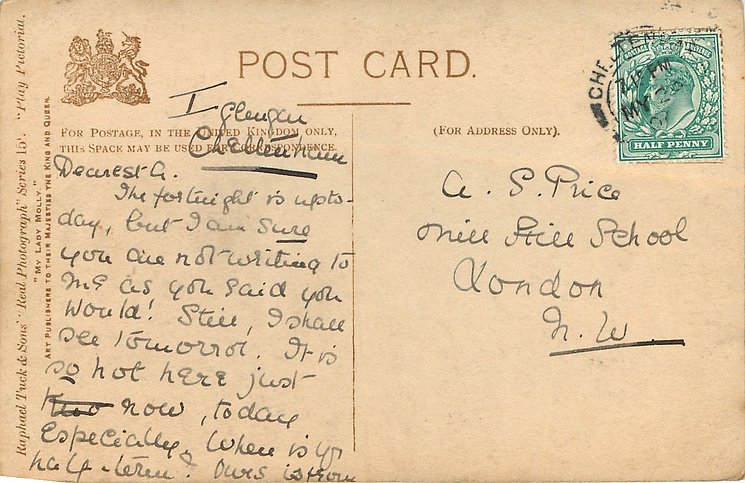 POST CARD.
FOR POSTAGE, IN THE UNITED KINGDOM ONLY,
THIS SPACE MAY BE USED FOR CORRESPONDENCE.
(FOR ADDRESS ONLY).
Raphael Tuck & Sons' "Real Photograph" Series 151. "Play Pictorial."
"MY LADY MOLLY."
ART PUBLISHERS TO THEIR MAJESTIES THE KING AND QUEEN.
HALF PENNY
CHELTENHAM
7.15 PM
MY
07
I
Cheltenham
Dearest A.
The fortnight is up to-
day, but I am sure
you are not writing to
me as you said you
would! Still, I shall
see tomorrow. It is
so hot here just
now, today
especially. When is yr
half-term? Ours is from
A. S. Price
Mill Hill School
London
N. W.